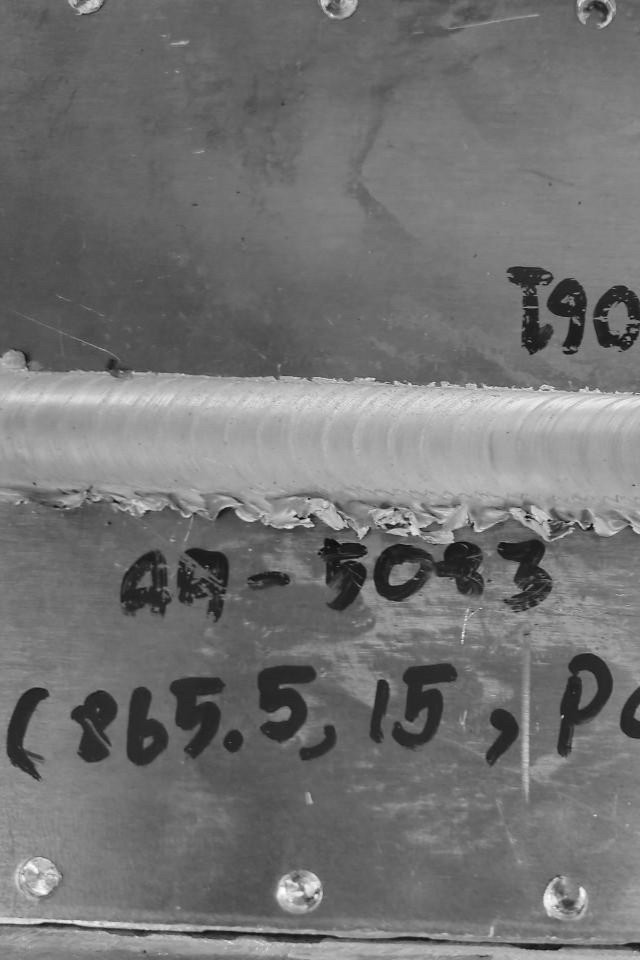 I90
AA-5083
(865.5, 15, Po